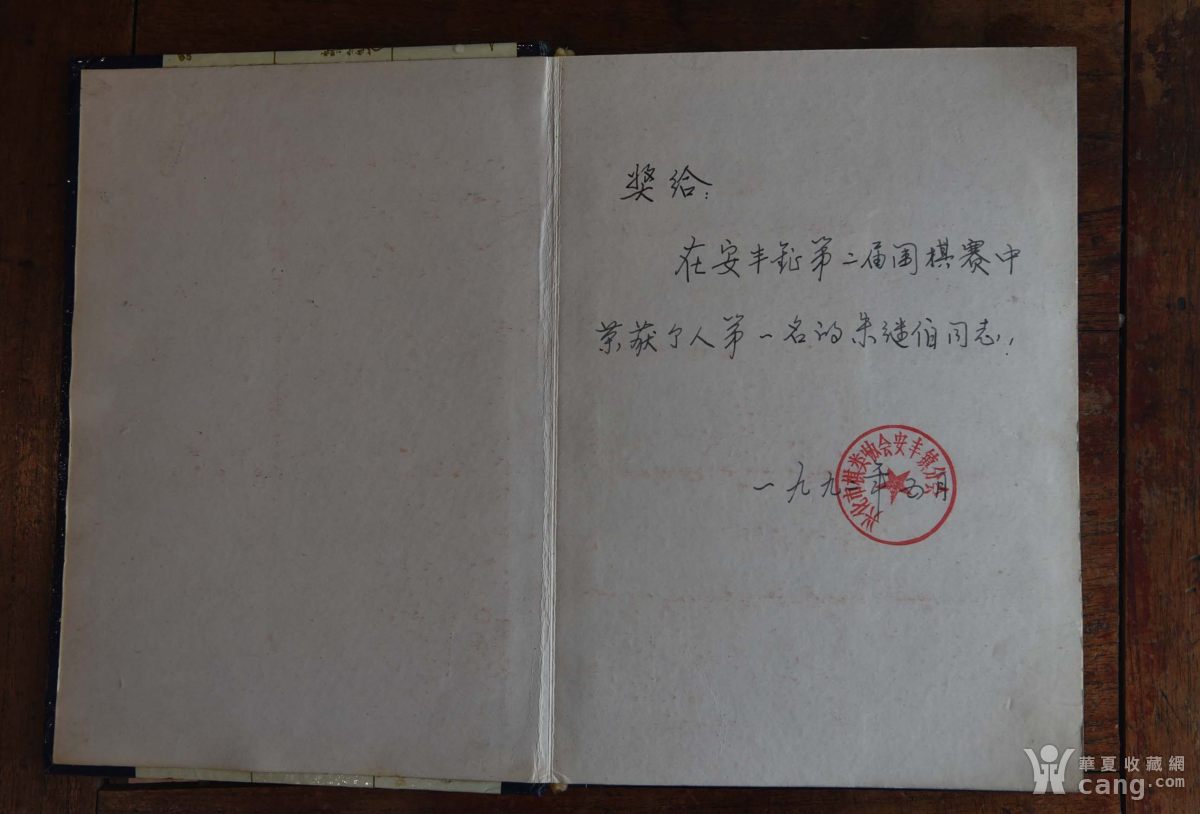 奖给:
在安丰镇第二届围棋赛中
荣获个人第一名的朱继伯同志.
一九九 年五月
兴化市棋类协会安丰镇分会
華夏收藏網
cang.com